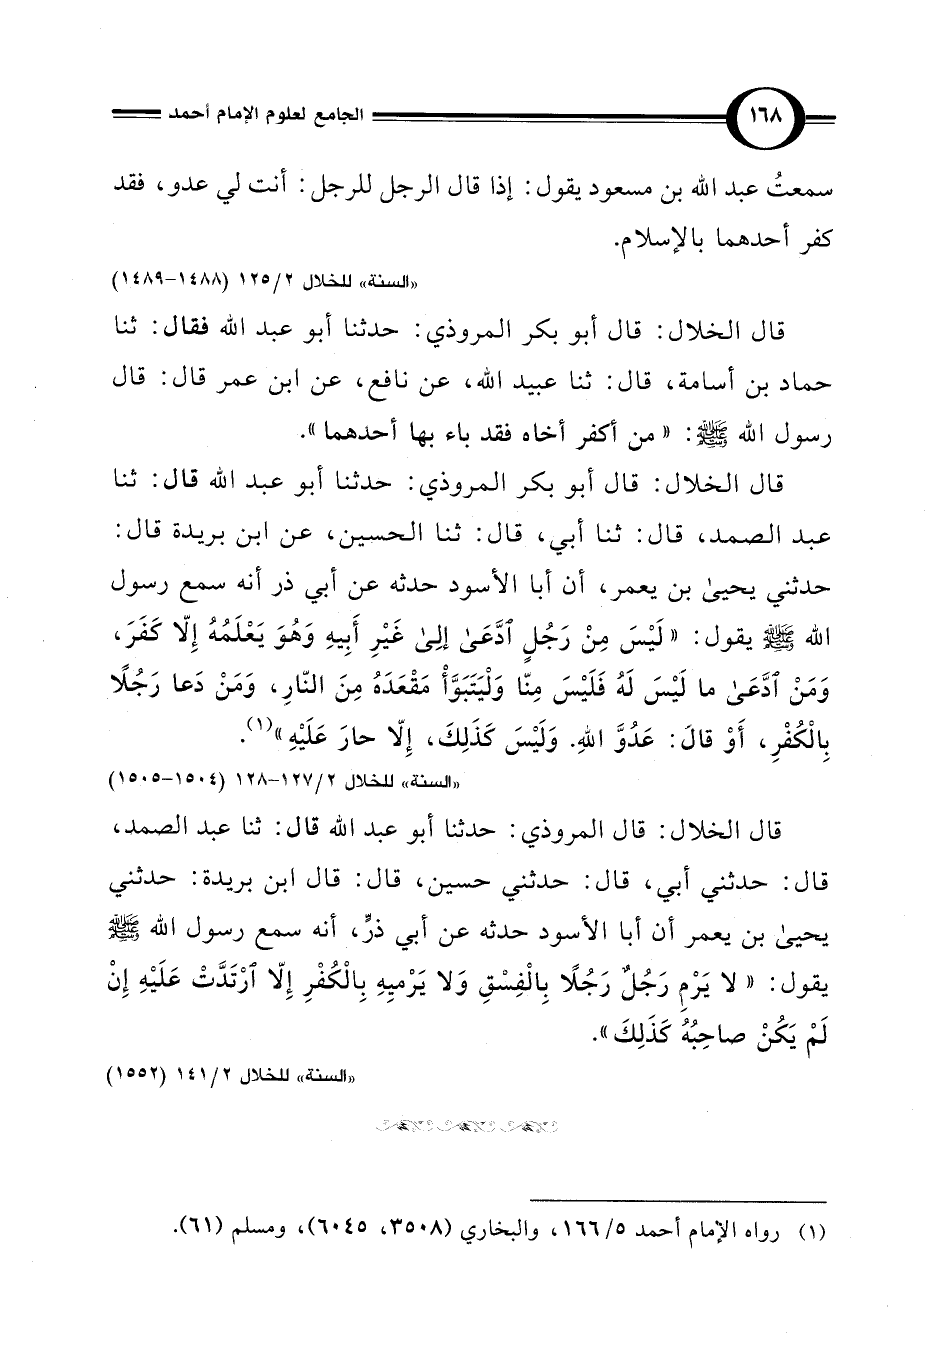 ١٦٨ الجامع لعلوم الإمام أحمد
سمعتُ عبد الله بن مسعود يقول: إذا قال الرجل للرجل: أنت لي عدو، فقد
كفر أحدهما بالإسلام.
«السنة» للخلال ٢/ ١٢٥ (١٤٨٨-١٤٨٩)
قال الخلال: قال أبو بكر المروذي: حدثنا أبو عبد الله فقال: ثنا
حماد بن أسامة، قال: ثنا عبيد الله، عن نافع، عن ابن عمر قال: قال
رسول الله ﷺ: «من أكفر أخاه فقد باء بها أحدهما».
قال الخلال: قال أبو بكر المروذي: حدثنا أبو عبد الله قال: ثنا
عبد الصمد، قال: ثنا أبي، قال: ثنا الحسين، عن ابن بريدة قال:
حدثني يحيىٰ بن يعمر، أن أبا الأسود حدثه عن أبي ذر أنه سمع رسول
الله ﷺ يقول: «لَيْسَ مِنْ رَجُلٍ ٱدَّعَىٰ إلىٰ غَيْرِ أَبِيهِ وَهُوَ يَعْلَمُهُ إِلَّا كَفَرَ،
وَمَنْ ٱدَّعَىٰ ما لَيْسَ لَهُ فَلَيْسَ مِنَّا وَلْيَتَبَوَّأْ مَقْعَدَهُ مِنَ النّارِ، وَمَنْ دَعا رَجُلًا
بِالْكُفْرِ، أَوْ قالَ: عَدُوَّ اللهِ. وَلَيْسَ كَذَلِكَ، إِلَّا حارَ عَلَيْهِ»(١).
«السنة» للخلال ٢/ ١٢٧-١٢٨ (١٥٠٤-١٥٠٥)
قال الخلال: قال المروذي: حدثنا أبو عبد الله قال: ثنا عبد الصمد،
قال: حدثني أبي، قال: حدثني حسين، قال: قال ابن بريدة: حدثني
يحيىٰ بن يعمر أن أبا الأسود حدثه عن أبي ذرٍّ، أنه سمع رسول الله ﷺ
يقول: «لا يَرْمِ رَجُلٌ رَجُلًا بِالْفِسْقِ وَلا يَرْمِيهِ بِالْكُفْرِ إِلَّا ٱرْتَدَّتْ عَلَيْهِ إِنْ
لَمْ يَكُنْ صاحِبُهُ كَذَلِكَ».
«السنة» للخلال ٢/ ١٤١ (١٥٥٢)
(١) رواه الإمام أحمد ٥/ ١٦٦، والبخاري (٣٥٠٨، ٦٠٤٥)، ومسلم (٦١).